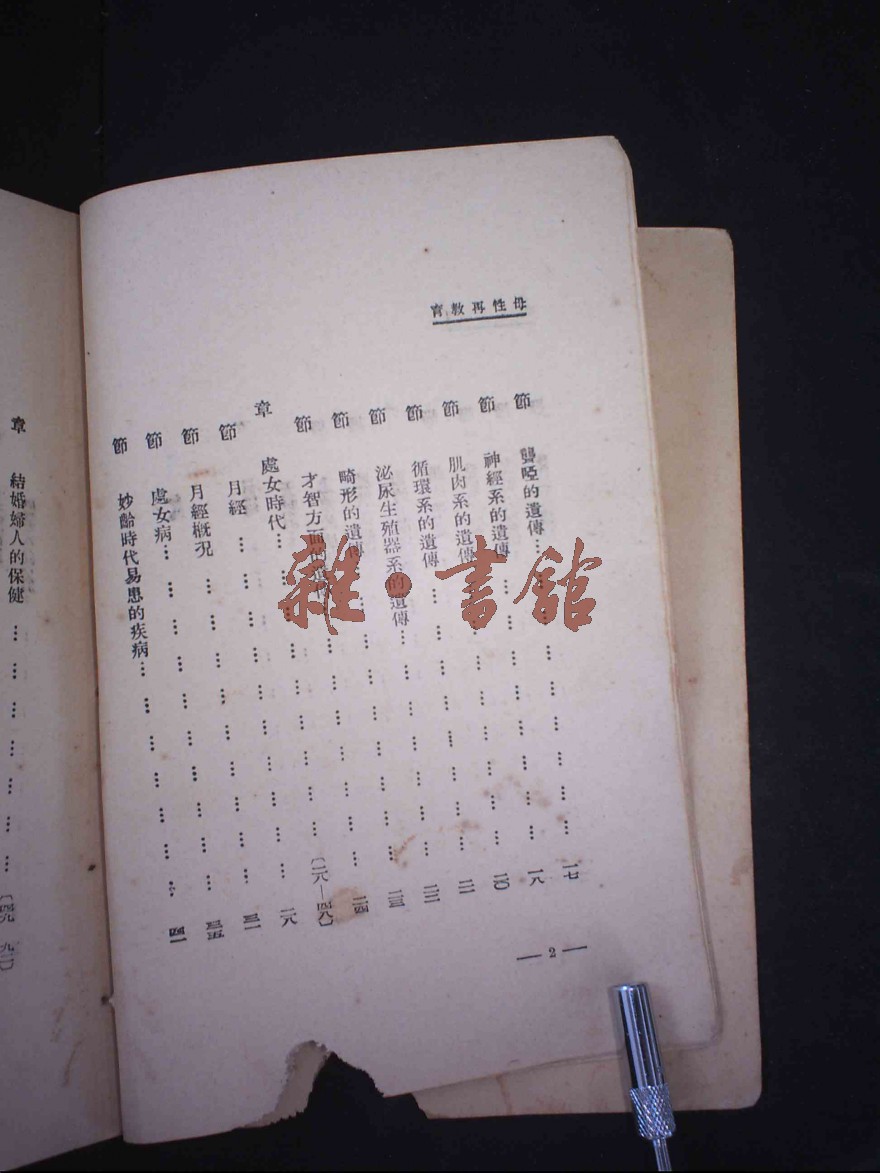 母性再教育
節 聾啞的遺傳 … … … … … … … 一七
節 神經系的遺傳 … … … … … … 一八
節 肌肉系的遺傳 … … … … … … 二〇
節 循環系的遺傳 … … … … … … 二一
節 泌尿生殖器系的遺傳 … … … … … 二二
節 畸形的遺傳 … … … … … … 二三
節 才智方面的遺傳 … … … … … … 二四
章 處女時代 … … … … … … … 〔二八—四八〕
節 月經 … … … … … … … 二八
節 月經概況 … … … … … … … 三一
節 處女病 … … … … … … … 三五
節 妙齡時代易患的疾病 … … … … … … 四一
— 2 —
章 結婚婦人的保健 … … … … … … …
雜·書館